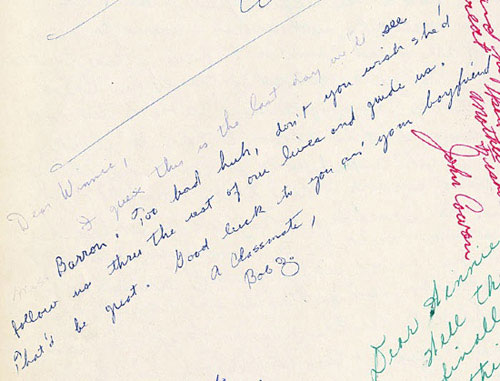 Dear Winnie,
I guess this is the last day we'll see
Miss Barron. Too bad huh, don't you wish she'd
follow us thru the rest of our lives and guide us.
That'd be great. Good luck to you an' your boyfriend
A Classmate,
Bob
another
John Cowan
Dear Winnie
Well th